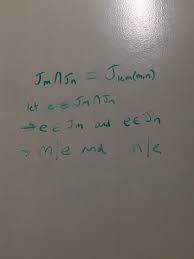 Jm∩Jn = Jlcm(m,n)
let e ∈ Jm∩Jn
→ e ∈ Jm and e ∈ Jn
→ m/e and n/e